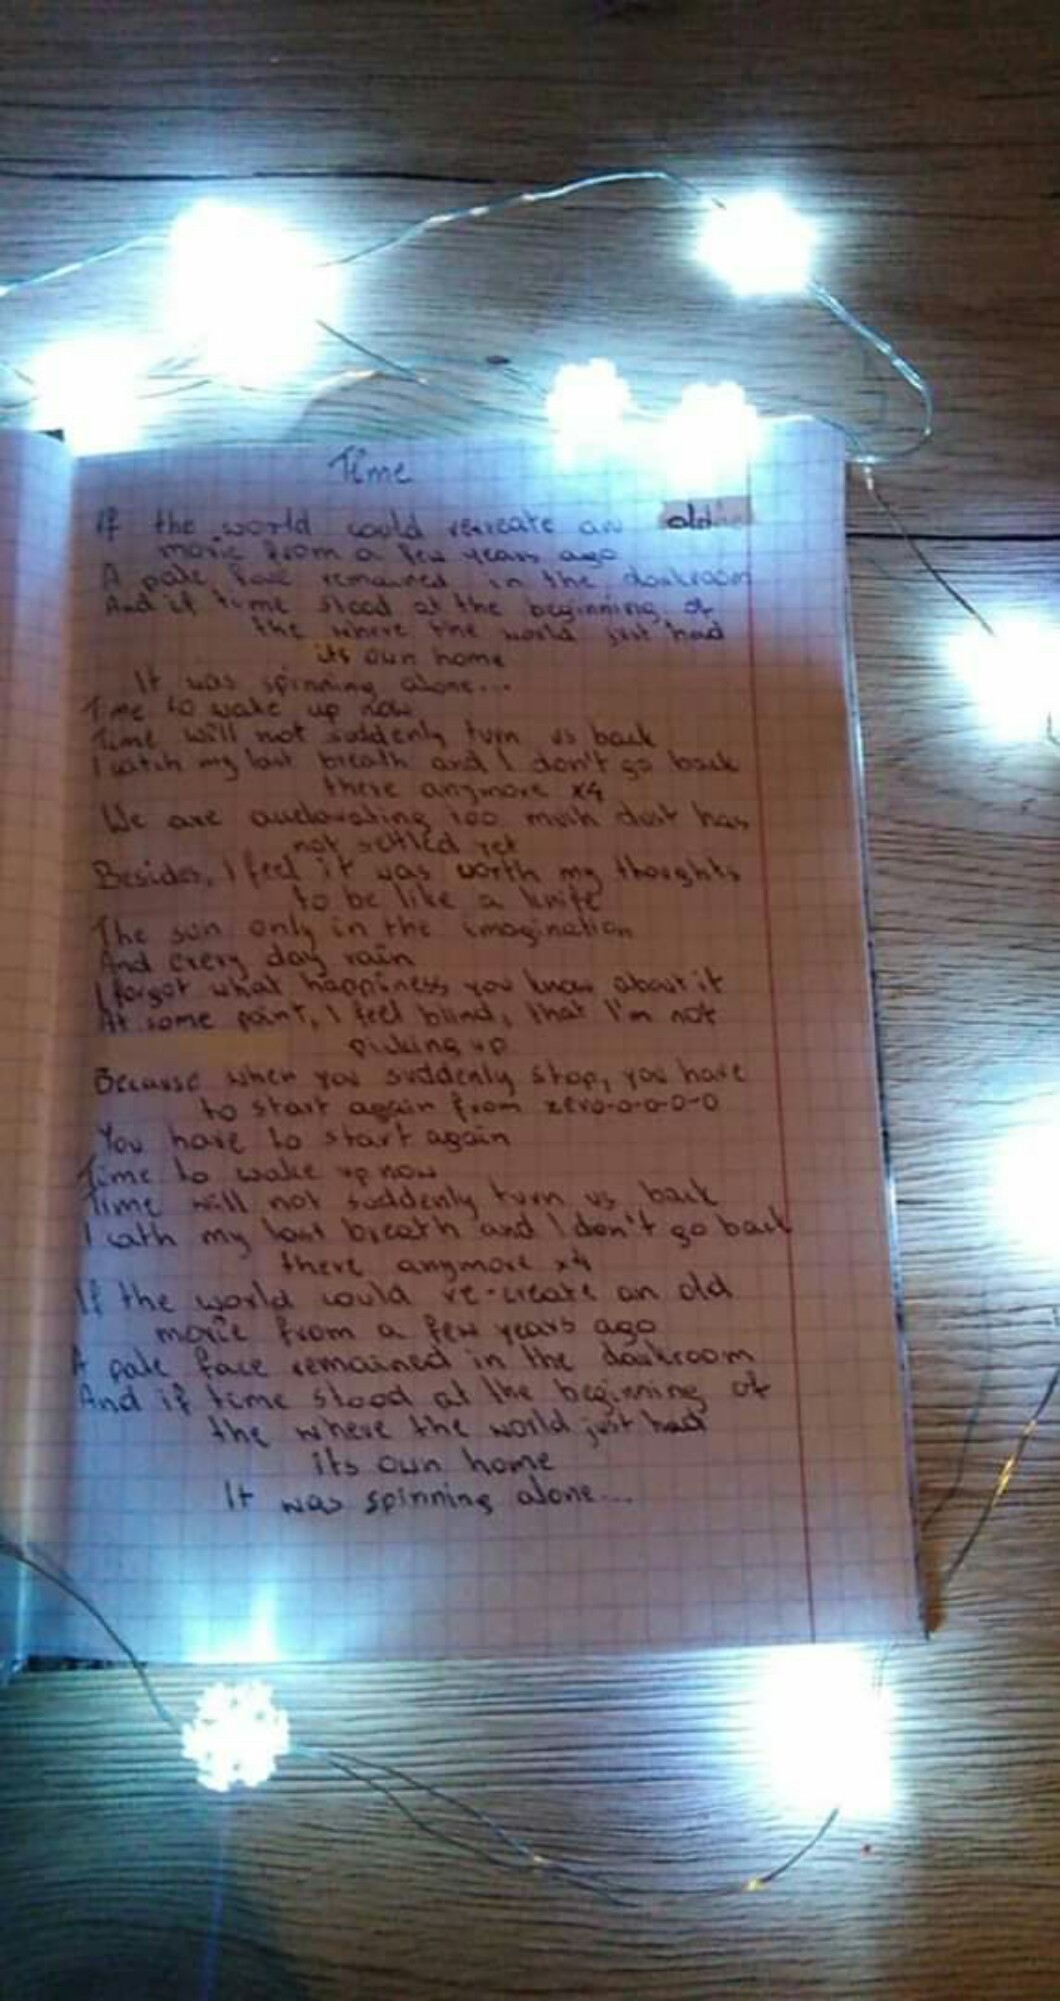 Time
If the world could recreate an old
movie from a few years ago
A pale face remained in the darkroom
And if time stood at the beginning of
the where the world just had
its own home
It was spinning alone...
Time to wake up now
Time will not suddenly turn us back
I catch my last breath and I don't go back
there anymore x4
We are accelerating too much dust has
not settled yet
Besides, I feel it was worth my thoughts
to be like a knife
The sun only in the imagination
And every day rain
I forgot what happiness you know about it
At some point, I feel blind, that I'm not
picking up
Because when you suddenly stop, you have
to start again from zero-o-o-o-o
You have to start again
Time to wake up now
Time will not suddenly turn us back
I cath my last breath and I don't go back
there anymore x4
If the world could re-create an old
movie from a few years ago
A pale face remained in the darkroom
And if time stood at the beginning of
the where the world just had
its own home
It was spinning alone...